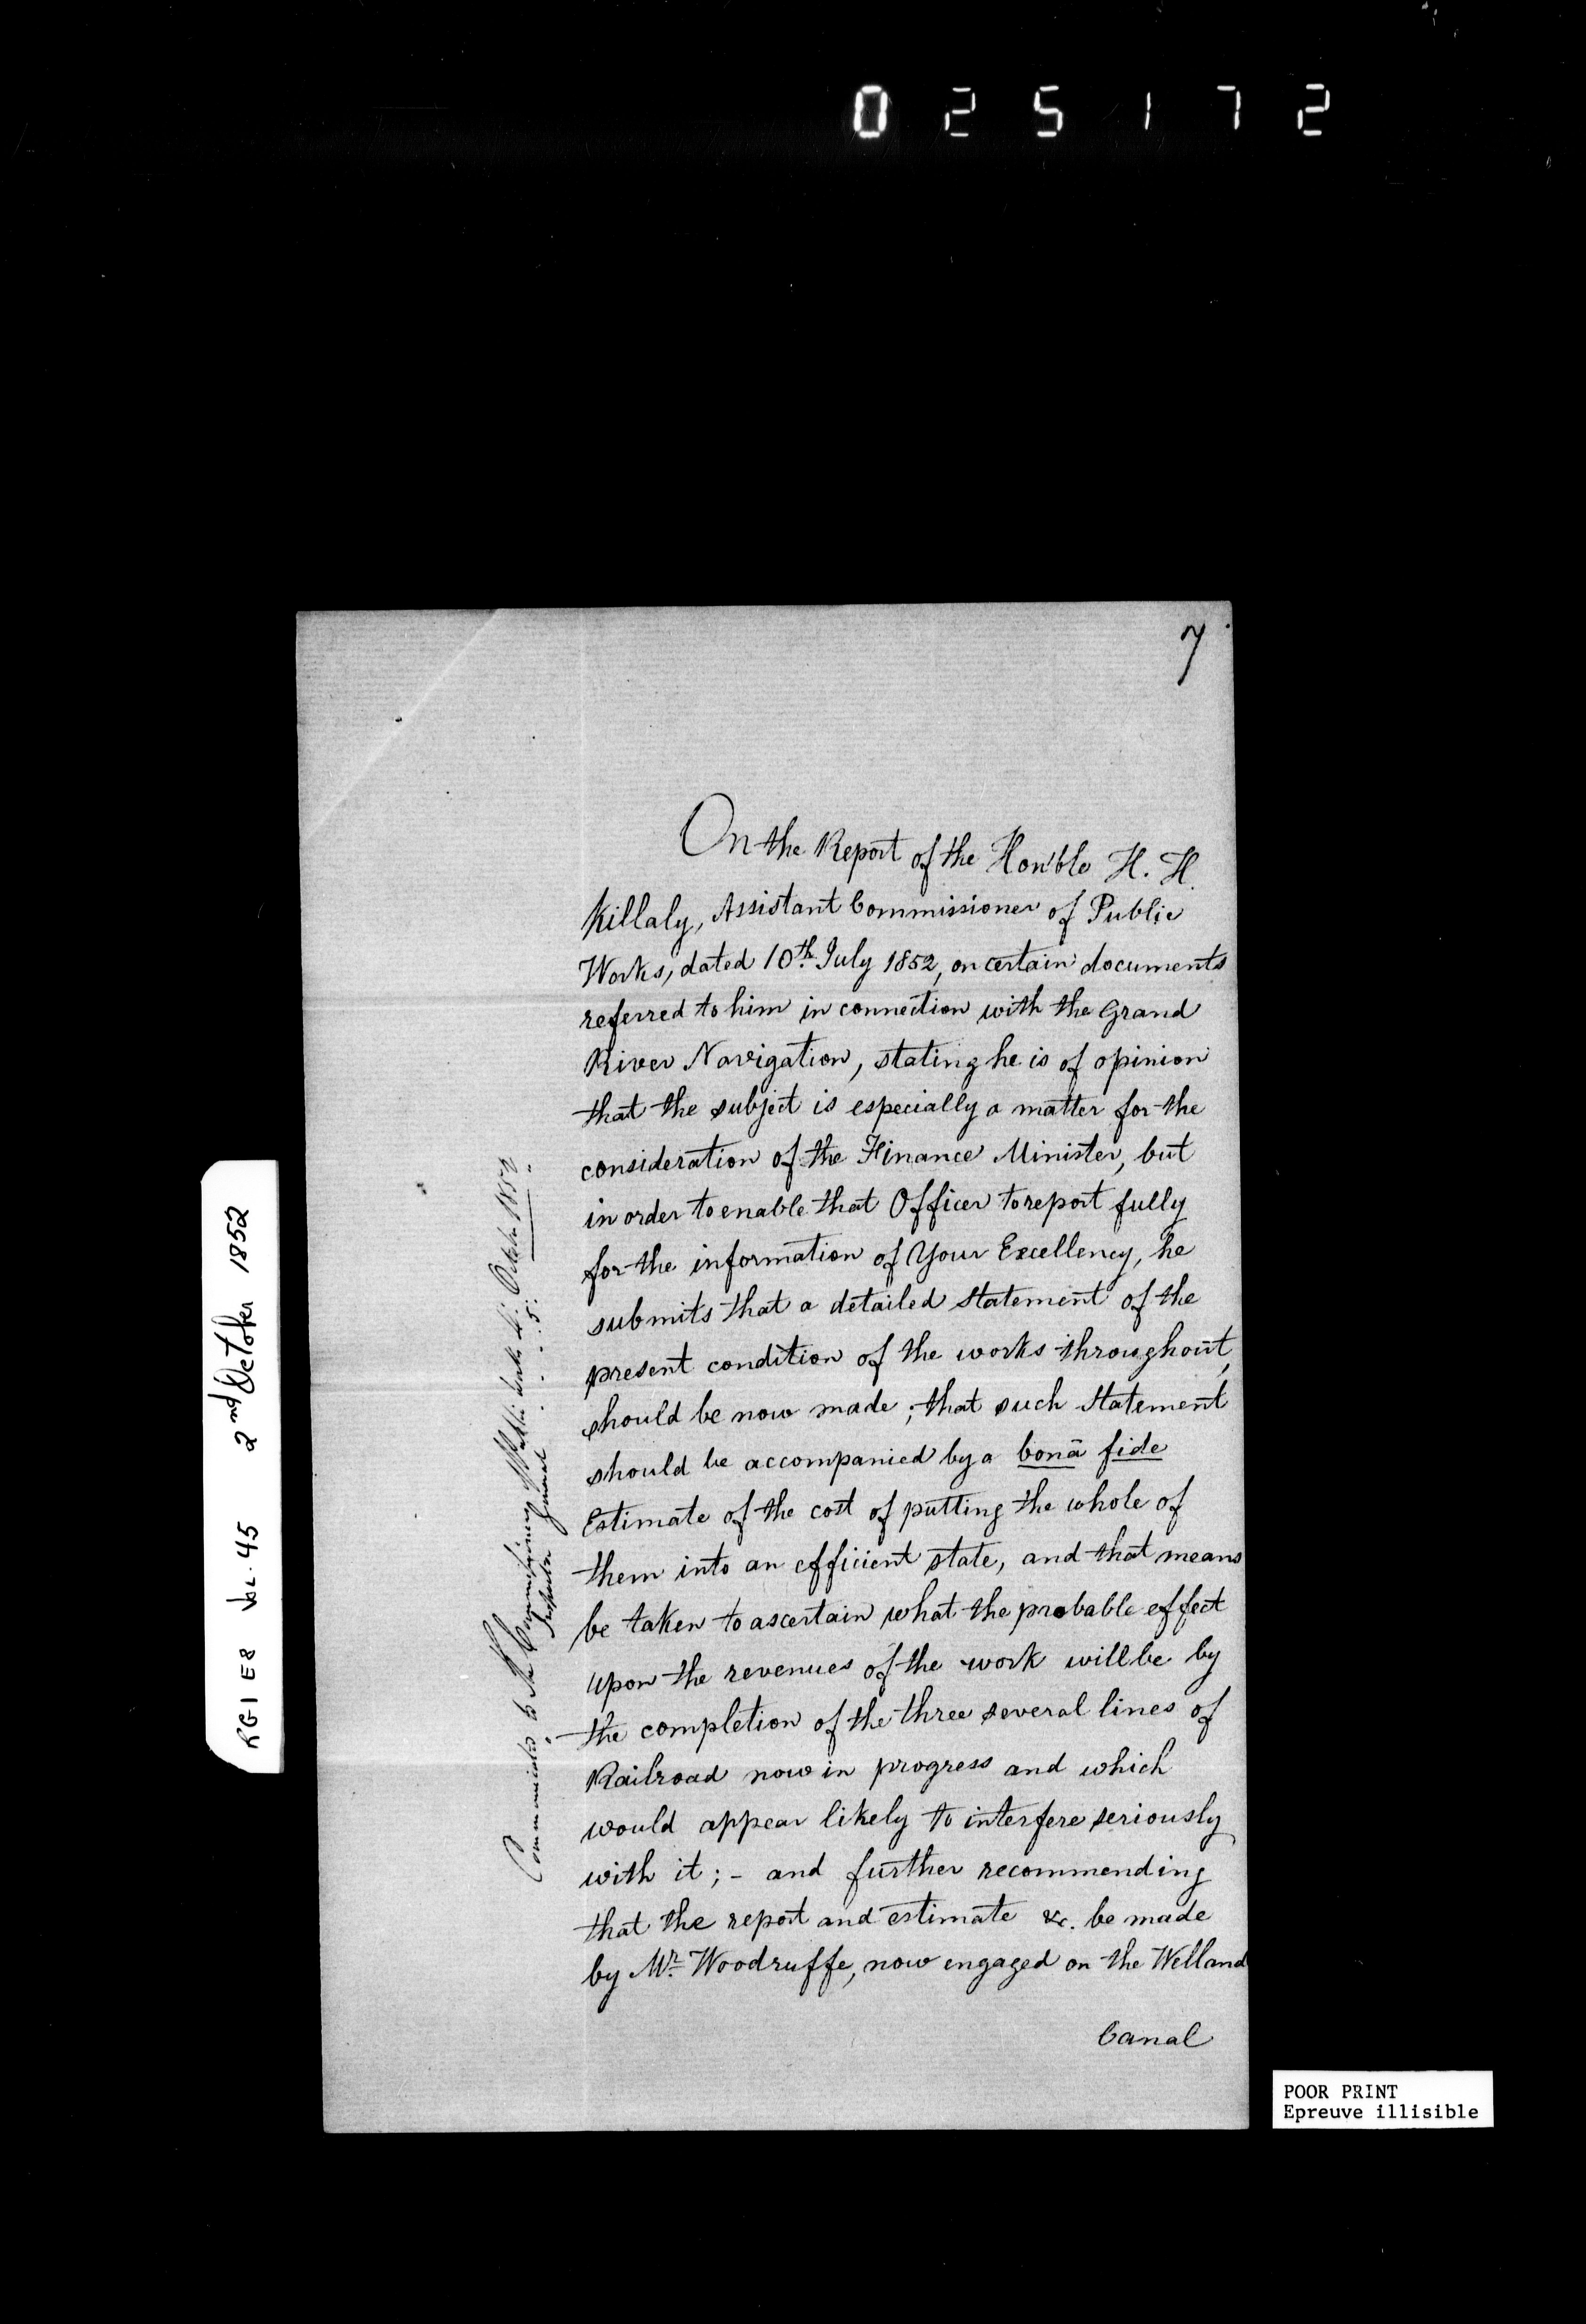 025172
7
On the Report of the Hon'ble H. H.
Killaly, Assistant Commissioner of Public
Works, dated 10th. July 1852, on certain documents
referred to him in connection with the Grand
River Navigation, stating he is of opinion
that the subject is especially a matter for the
consideration of the Finance Minister, but
in order to enable that Officer to report fully
for the information of Your Excellency, he
submits that a detailed Statement of the
present condition of the works throughout,
should be now made; that such Statement
should be accompanied by a bonâ fide
Estimate of the cost of putting the whole of
them into an efficient state, and that means
be taken to ascertain what the probable effect
upon the revenues of the work will be by
the completion of the three several lines of
Railroad now in progress and which
would appear likely to interfere seriously
with it; - and further recommending
that the report and estimate &c. be made
by Mr. Woodruffe, now engaged on the Welland
Canal
Communicated to the Commissioners of Public Works 4: October 1852
Inspector General " 5: "
RG1 E8 Vol. 45 2nd October 1852
POOR PRINT
Epreuve illisible